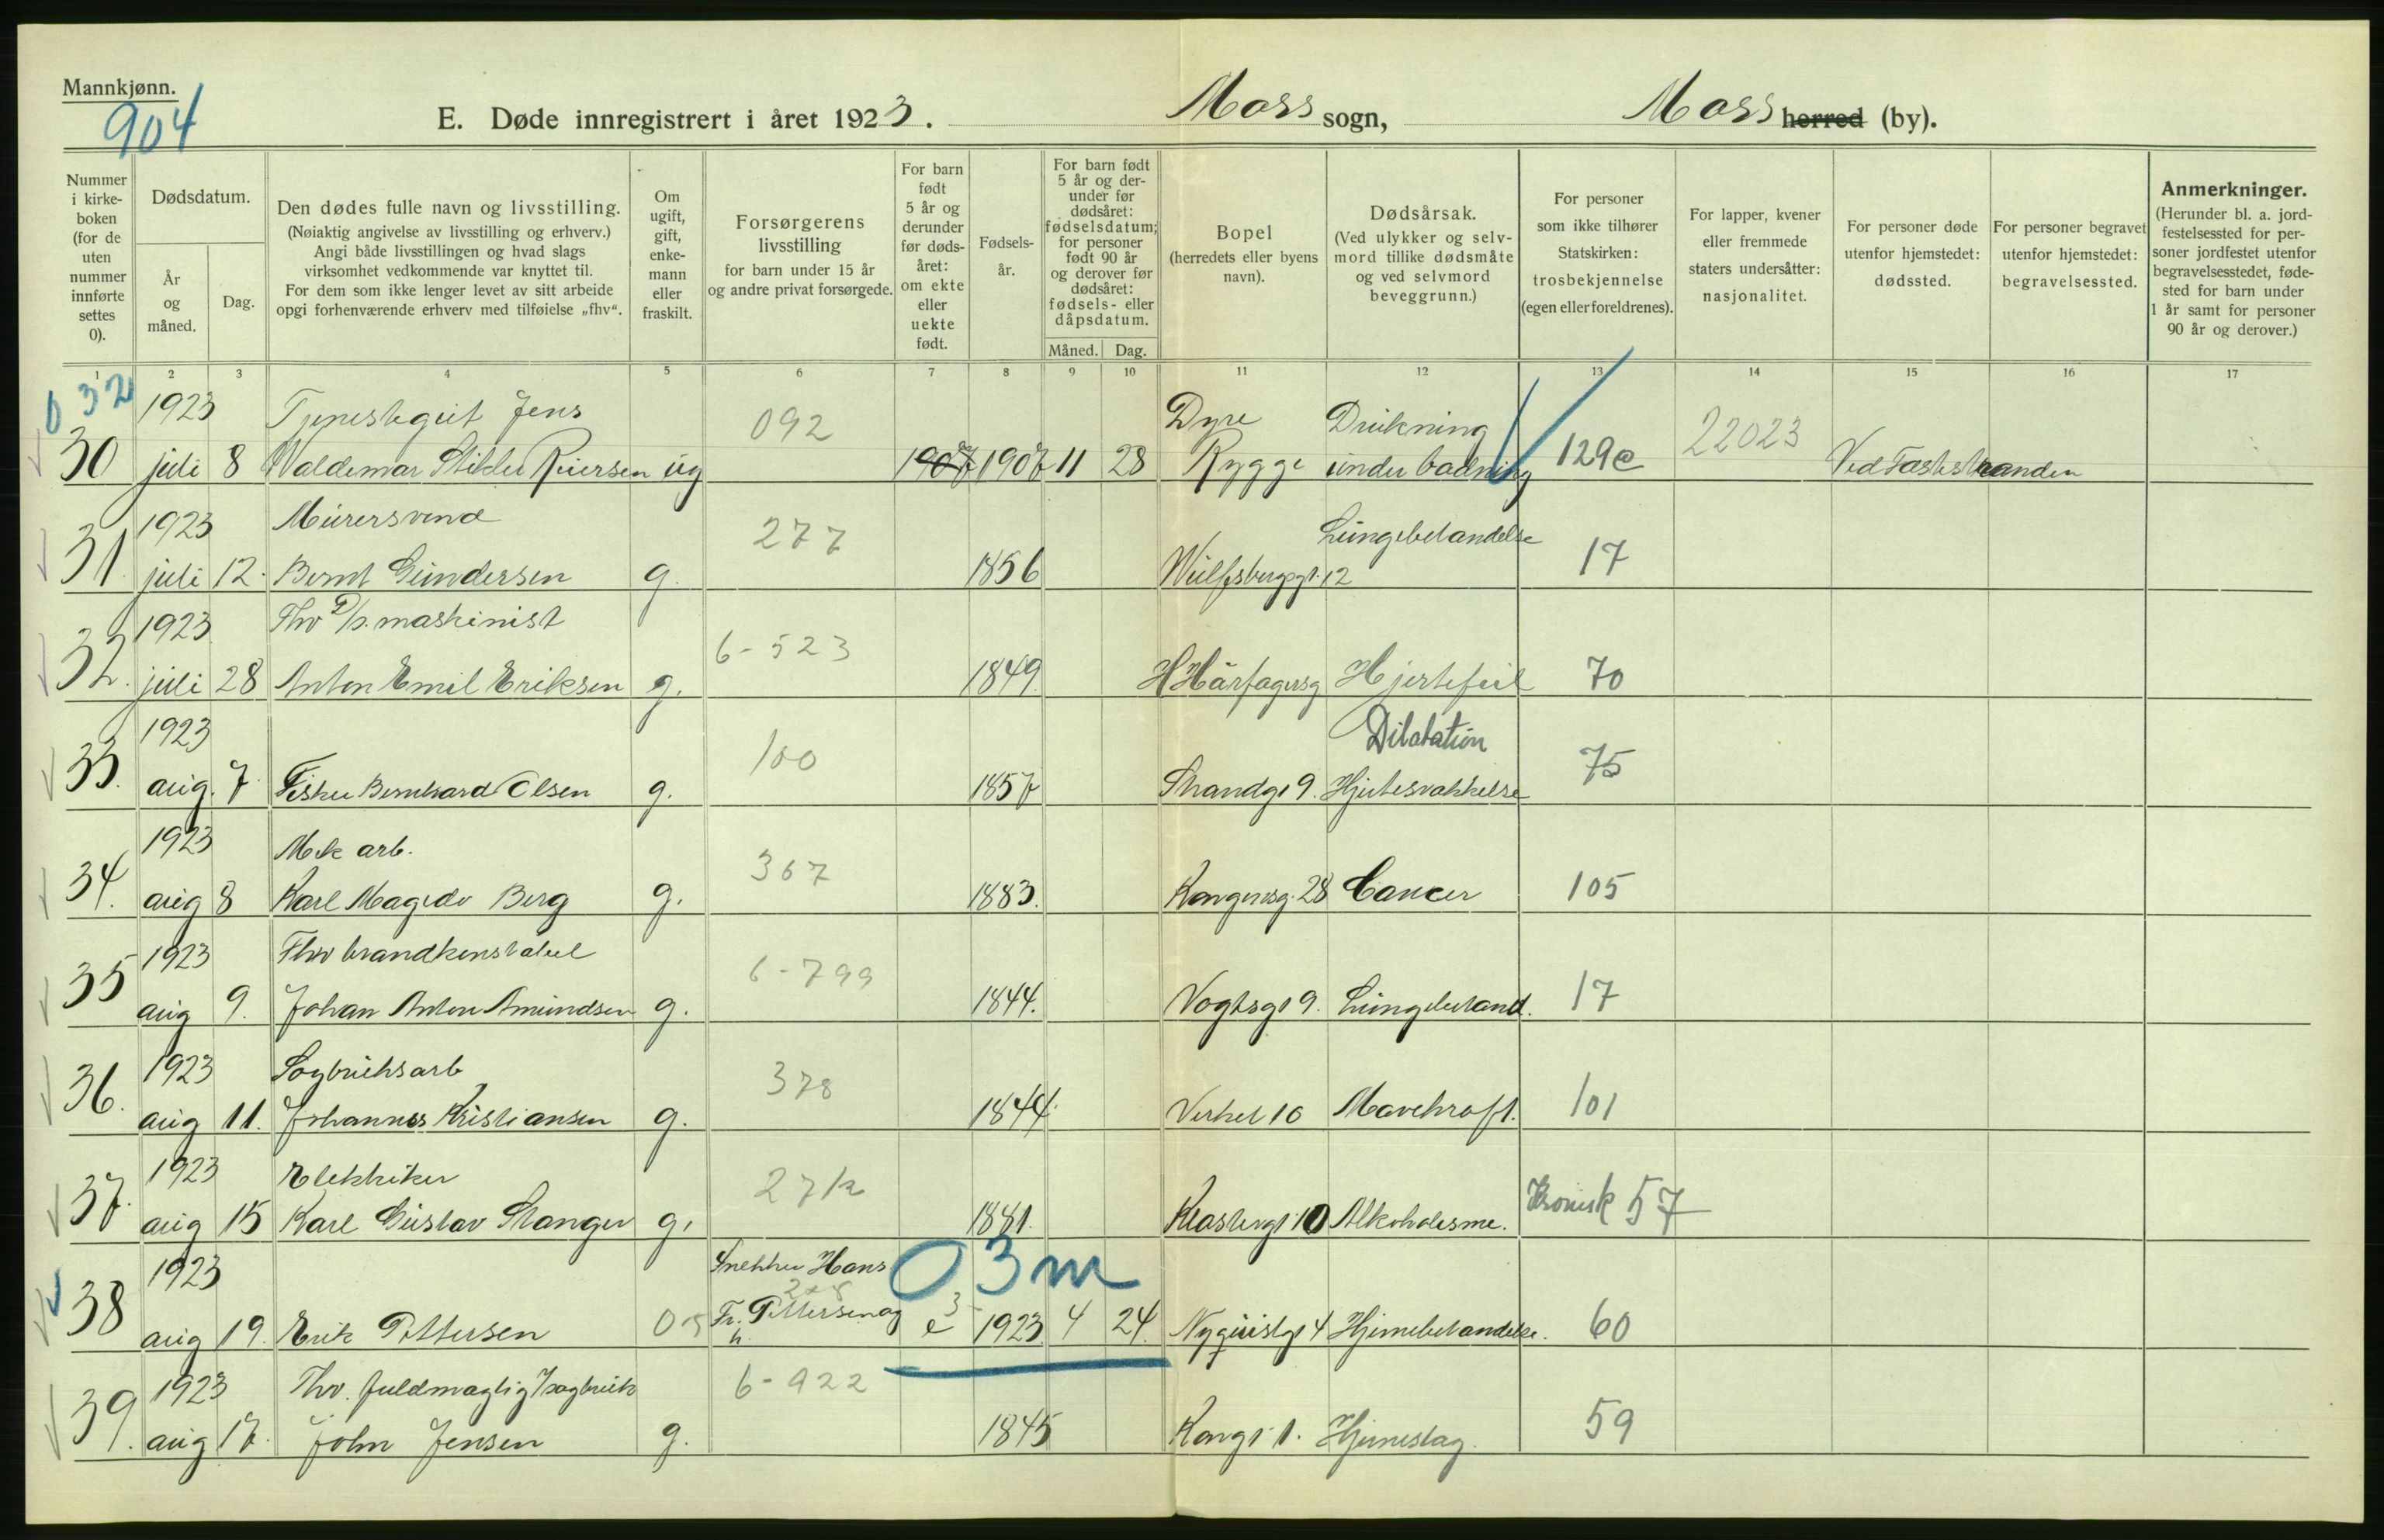 Mannkjønn.
904
E. Døde innregistrert i året 1923. Moss sogn, Moss herred (by).
Nummer i kirke-boken (for de uten nummer innførte settes 0).
Dødsdatum.
År og måned.
Dag.
Den dødes fulle navn og livsstilling.
(Nøiaktig angivelse av livsstilling og erhverv.)
Angi både livsstillingen og hvad slags
virksomhet vedkommende var knyttet til.
For dem som ikke lenger levet av sitt arbeide
opgi forhenværende erhverv med tilføielse „fhv“.
Om ugift, gift, enke-mann eller fraskilt.
Forsørgerens
livsstilling
for barn under 15 år
og andre privat forsørgede.
For barn født 5 år og derunder før døds-året: om ekte eller uekte født.
Fødsels-år.
For barn født 5 år og der-under før dødsåret: fødselsdatum; for personer født 90 år og derover før dødsåret: fødsels- eller dåpsdatum.
Måned.
Dag.
Bopel
(herredets eller byens
navn).
Dødsårsak.
(Ved ulykker og selv-
mord tillike dødsmåte
og ved selvmord
beveggrunn.)
For personer
som ikke tilhører
Statskirken:
trosbekjennelse
(egen eller foreldrenes).
For lapper, kvener
eller fremmede
staters undersåtter:
nasjonalitet.
For personer døde
utenfor hjemstedet:
dødssted.
For personer begravet
utenfor hjemstedet:
begravelsessted.
Anmerkninger.
(Herunder bl. a. jord-
festelsessted for per-
soner jordfestet utenfor
begravelsesstedet, føde-
sted for barn under
1 år samt for personer
90 år og derover.)
1 2 3 4 5 6 7 8 9 10 11 12 13 14 15 16 17
032 1923 Tjenestegut Jens 092 Dyre Drukning 22023
30 juli 8 Valdemar Reiersen ug 1907 1907 11 28 Rygge under badning 129e Ved
1923 Murersvend 277 Lungebetandelse
31. juli 12. Bernt Gundersen g. 1856 Wulfsbergsgt. 12 17
1923 Fhv D/s. maskinist 6-523
32. juli 28 Anton Emil Eriksen g. 1849. H Hårfagersg Hjertefeil 70
1923 100 Dilatation
33. aug. 7. Fisker Bernhard Olsen g. 1857 Strandgt 9. Hjertesvakkelse 75
1923 Mek arb. 367
34. aug 8 Karl Magedo Berg g. 1883. Kongensg. 28 Cancer 105
1923 Fhv brandkonstabel 6-799
35 aug 9. Johan Anton Amundsen g. 1844. Vogtsgt 9. Lungebetand. 17
1923 Sagbruksarb 378
36. aug 11. Johannes Kristiansen g. 1844. Verket 10 Mavekræft. 101
1923 Elektriker 27k
37. aug 15 Karl Gustav Stanger g. 1881. Klostergt 10 Alkoholisme. Kronisk 57
1923 Snekker Hans 03m
38 aug 19. Erik Pettersen 05 Fr. Pettersen og h. e 3 1923 4 24. Nyquistgt 4 Hjernebetandelse. 60
1923 Fhv. fuldmægtig v/sagbruk 6-922
39. aug 17. John Jensen g. 1845 Kongsgt 1. Hjerneslag. 59